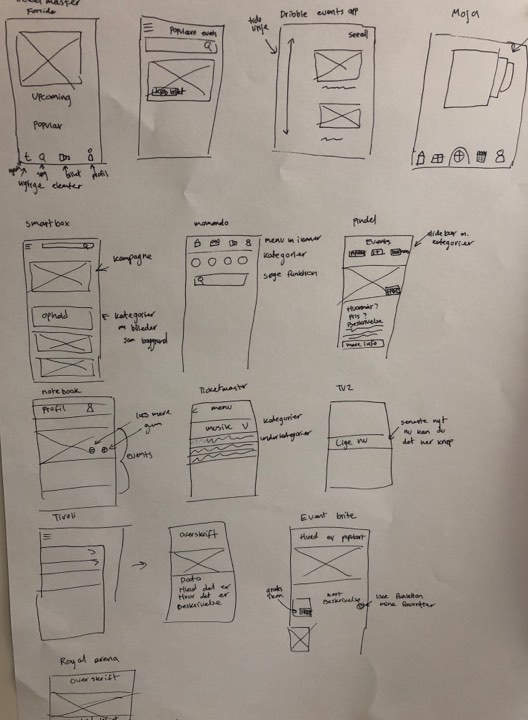 Forside
Upcoming
Popular
søg
billet
profil
Populære events
Køb billet
tids
linje
Dribble events app
See all
Moja
Smartbox
Kampagne
Ophold
Kategorier
m billeder
som baggrund
momondo
menu m ikoner
kategorier
søge funktion
pindel
Events
slidebar m.
kategorier
Hvornår?
Pris?
Beskrivelse
more info
notebook
Profil
læs mere
gem
events
Ticketmaster
menu
musik
kategorier
underkategorier
TV2
Lige nu
seneste nyt
nu kan du
det her knap
Tivoli
overskrift
Dato
Hvad det er
Hvor det er
Beskrivelse
Event brite
Hvad er populært
gratis
kort
Beskrivelse
like funktion
mine favoritter
Royal arena
overskrift